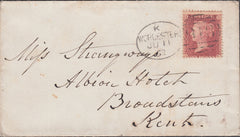 K
WORCESTER
JU 11
Miss Strangways
Albion Hotel
Broadstairs
Kent